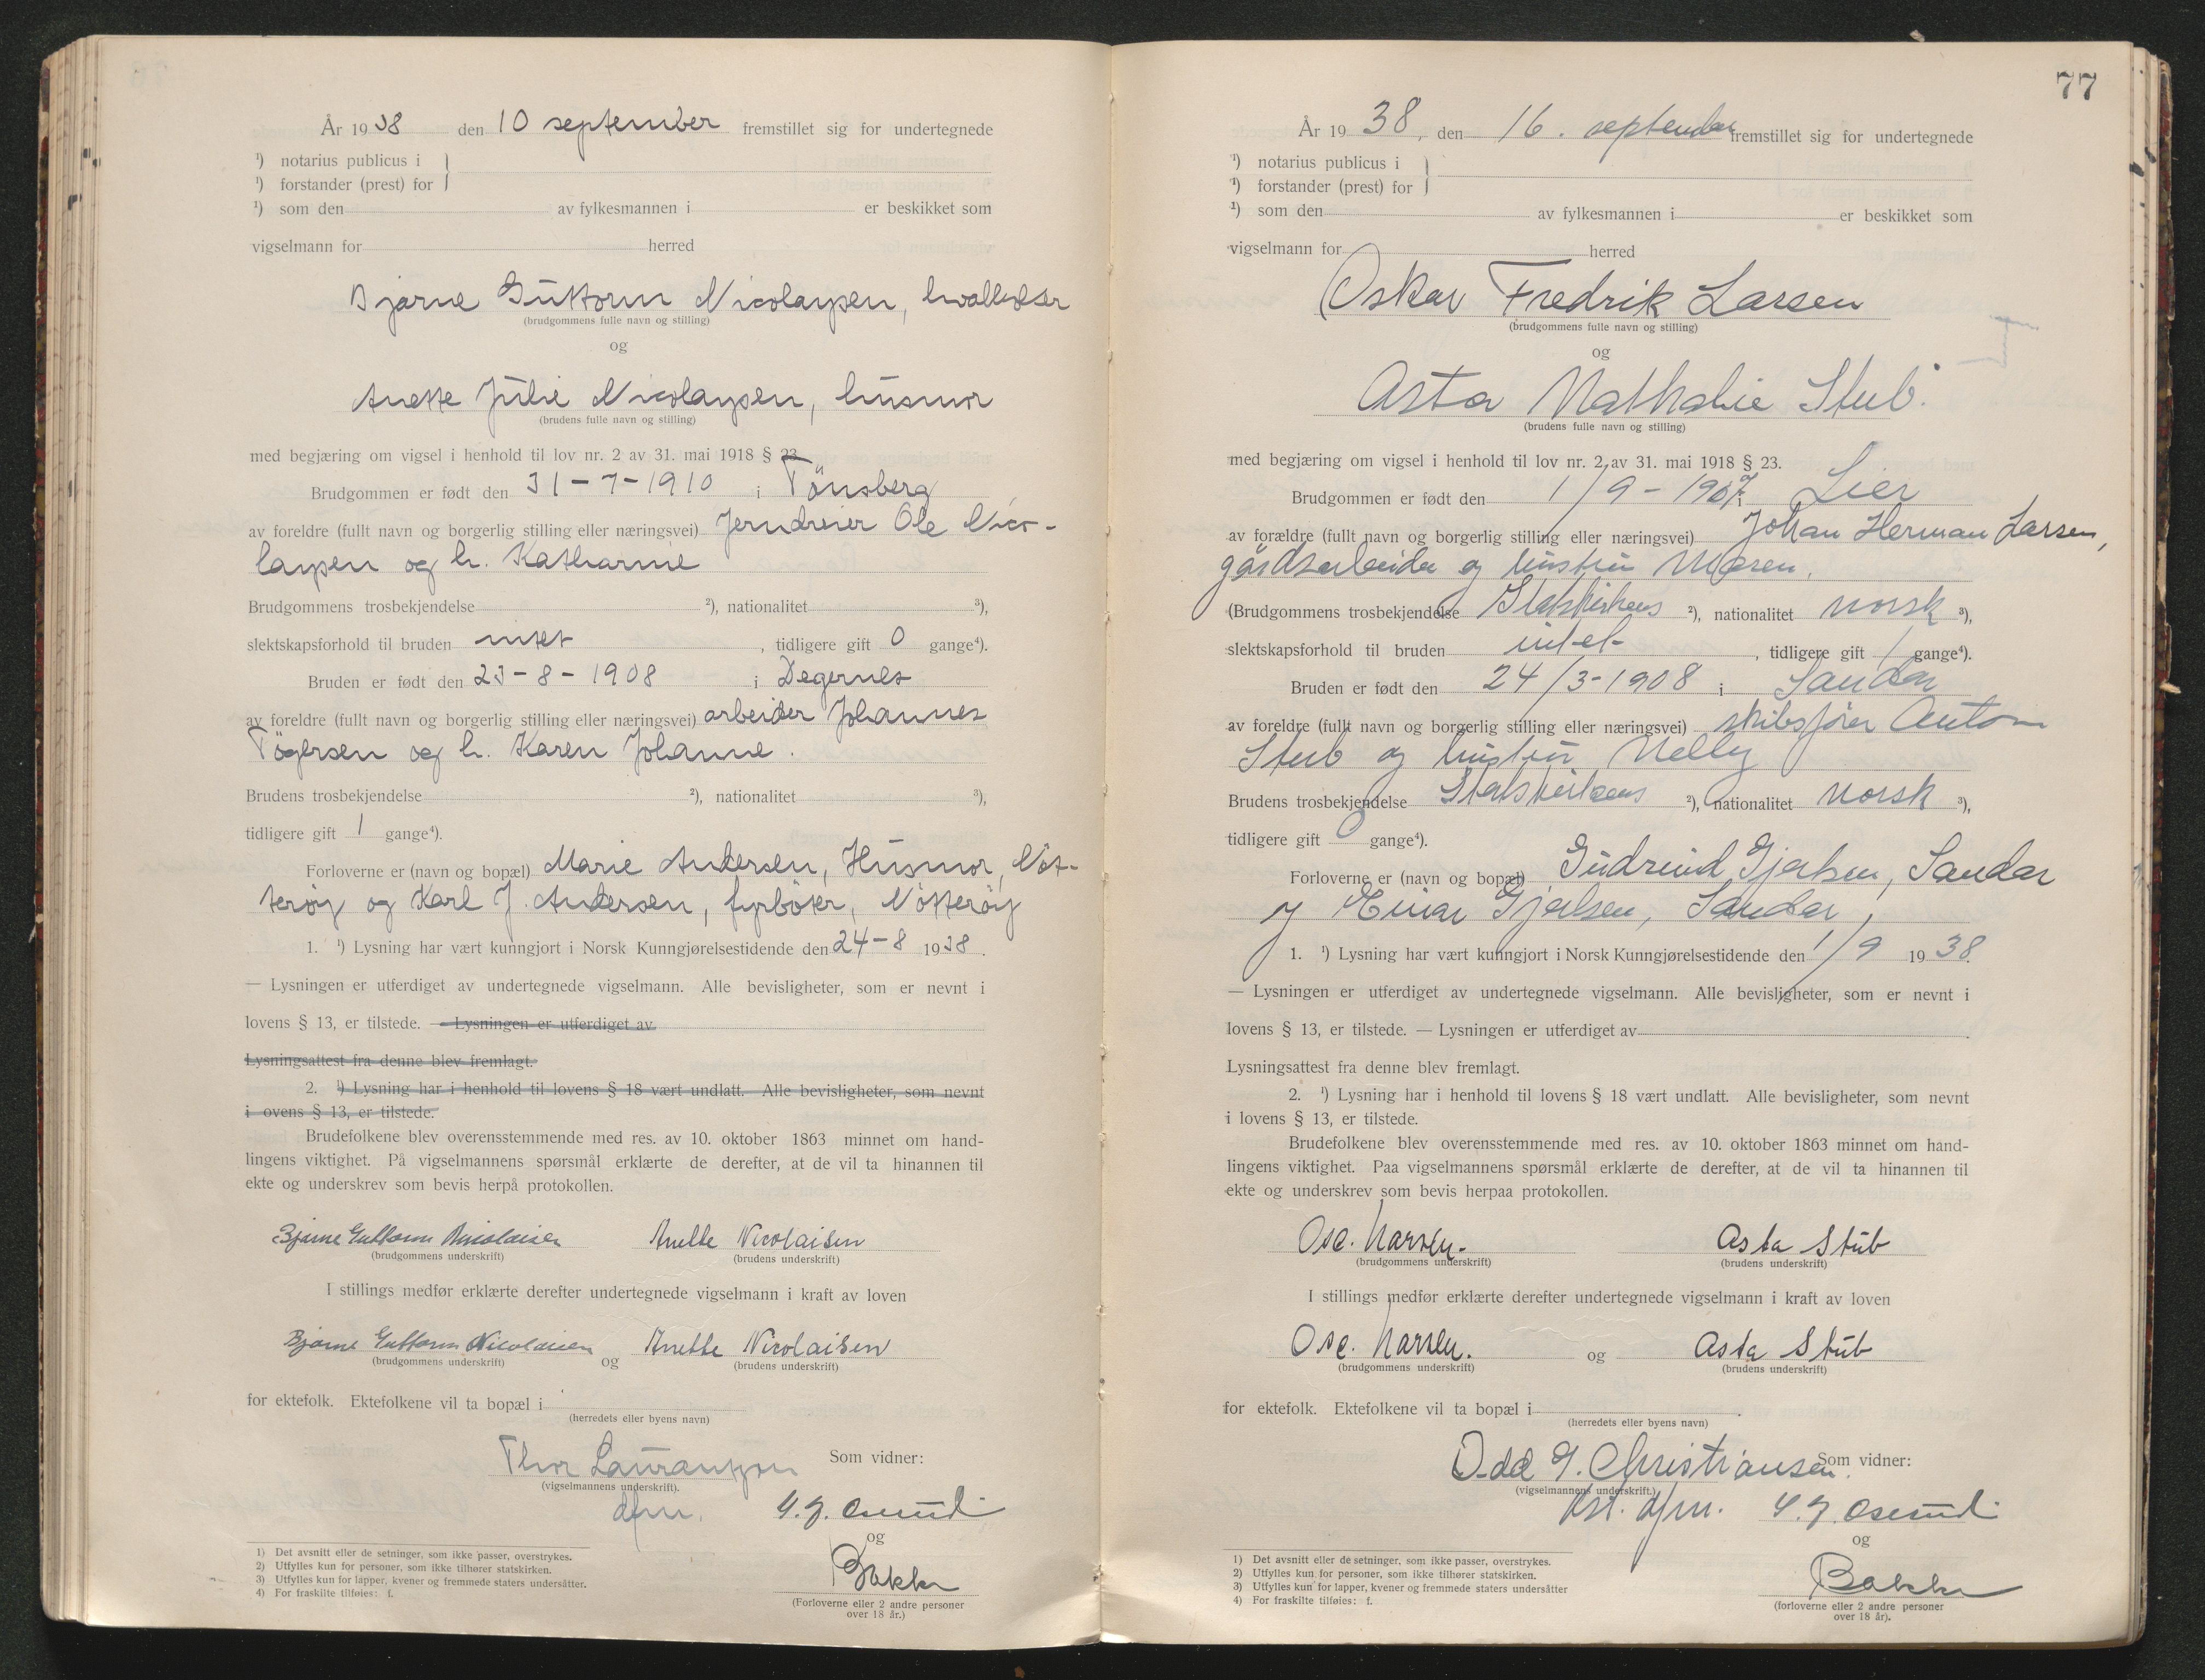 År 1938 den 10 september fremstillet sig for undertegnede
¹) notarius publicus i
¹) forstander (prest) for
¹) som den av fylkesmannen i er beskikket som
vigselmann for herred
Bjarne Guttorm Nicolaysen, hvalbåtskr
(brudgommens fulle navn og stilling)
og
Anette Julie Nicolaysen, husmor
(brudens fulle navn og stilling)
med begjæring om vigsel i henhold til lov nr. 2 av 31. mai 1918 § 23.
Brudgommen er født den 31-7-1910 i Tönsberg
av foreldre (fullt navn og borgerlig stilling eller næringsvei) Jerndreier Ole Nico-
laysen og h. Katharine
Brudgommens trosbekjendelse ²), nationalitet ³),
slektskapsforhold til bruden intet, tidligere gift 0 gange⁴).
Bruden er født den 23-8-1908 i Degernes
av foreldre (fullt navn og borgerlig stilling eller næringsvei) arbeider Johannes
Tögersen og h. Karen Johanne.
Brudens trosbekjendelse ²), nationalitet ³),
tidligere gift 1 gange⁴).
Forloverne er (navn og bopæl) Marie Andersen, Husmor, Nöt-
teröy og Karl J. Andersen, fyrböter, Nötteröy
1. ¹) Lysning har vært kunngjort i Norsk Kunngjørelsestidende den 24-8 1938.
— Lysningen er utferdiget av undertegnede vigselmann. Alle bevisligheter, som er nevnt i
lovens § 13, er tilstede. — Lysningen er utferdiget av
Lysningsattest fra denne blev fremlagt.
2. ¹) Lysning har i henhold til lovens § 18 vært undlatt. Alle bevisligheter, som nevnt
i ovens § 13, er tilstede.
Brudefolkene blev overensstemmende med res. av 10. oktober 1863 minnet om hand-
lingens viktighet. På vigselmannens spørsmål erklærte de derefter, at de vil ta hinannen til
ekte og underskrev som bevis herpå protokollen.
Bjarne Guttorm Nicolaisen Anette Nicolaisen
(brudgommens underskrift) (brudens underskrift)
I stillings medfør erklærte derefter undertegnede vigselmann i kraft av loven
Bjarne Guttorm Nicolaisen og Anette Nicolaisen
(brudgommens underskrift) (brudens underskrift)
for ektefolk. Ektefolkene vil ta bopæl i
(herredets eller byens navn)
Thor Lauranzon Som vidner:
(vigselmannens underskrift).
dfm. Osmund
og
Bakke
(Forloverne eller 2 andre personer
over 18 år.)
1) Det avsnitt eller de setninger, som ikke passer, overstrykes.
2) Utfylles kun for personer, som ikke tilhører statskirken.
3) Utfylles kun for lapper, kvener og fremmede staters undersåtter.
4) For fraskilte tilføies: f.
77
År 1938, den 16. september fremstillet sig for undertegnede
¹) notarius publicus i
¹) forstander (prest) for
¹) som den av fylkesmannen i er beskikket som
vigselmann for herred
Oskar Fredrik Larsen
(brudgommens fulle navn og stilling)
og
Asta Nathalie Stub.
(brudens fulle navn og stilling)
med begjæring om vigsel i henhold til lov nr. 2 av 31. mai 1918 § 23.
Brudgommen er født den 1/9-1907 i Lier
av forældre (fullt navn og borgerlig stilling eller næringsvei) Johan Herman Larsen,
gårdsarbeider og hustru Maren.
(Brudgommens trosbekjendelse Statskirkens ²), nationalitet norsk ³),
slektskapsforhold til bruden intet, tidligere gift 1 gange⁴).
Bruden er født den 24/3-1908 i Sandar
av foreldre (fullt navn og borgerlig stilling eller næringsvei) skibsfører Anton
Stub og hustru Nelly
Brudens trosbekjendelse Statskirkens ²), nationalitet norsk ³),
tidligere gift 0 gange⁴).
Forloverne er (navn og bopæl) Gudrund Gjertsen, Sandar
og Einar Gjertsen, Sandar,
1. ¹) Lysning har vært kunngjort i Norsk Kunngjørelsestidende den 1/9 1938.
— Lysningen er utferdiget av undertegnede vigselmann. Alle bevisligheter, som er nevnt i
lovens § 13, er tilstede. — Lysningen er utferdiget av
Lysningsattest fra denne blev fremlagt.
2. ¹) Lysning har i henhold til lovens § 18 vært undlatt. Alle bevisligheter, som nevnt
i lovens § 13, er tilstede.
Brudefolkene blev overensstemmende med res. av 10. oktober 1863 minnet om hand-
lingens viktighet. Paa vigselmannens spørsmål erklærte de derefter, at de vil ta hinannen til
ekte og underskrev som bevis herpaa protokollen.
Osc. Larsen. Asta Stub
(brudgommens underskrift) (brudens underskrift)
I stillings medfør erklærte derefter undertegnede vigselmann i kraft av loven
Osc. Larsen. og Asta Stub
(brudgommens underskrift) (brudens underskrift)
for ektefolk. Ektefolkene vil ta bopæl i
(herredets eller byens navn)
Odd G. Christiansen. Som vidner:
(vigselmannens underskrift.)
kst. dfm. Osmund
og
Bakke
(forloverne eller 2 andre personer
over 18 år).
1) Det avsnitt eller de setninger, som ikke passer, overstrykes.
2) Utfylles kun for personer, som ikke tilhører statskirken.
3) Utfylles kun for lapper, kvener og fremmede staters undersåtter
4) For fraskilte tilføies: f.